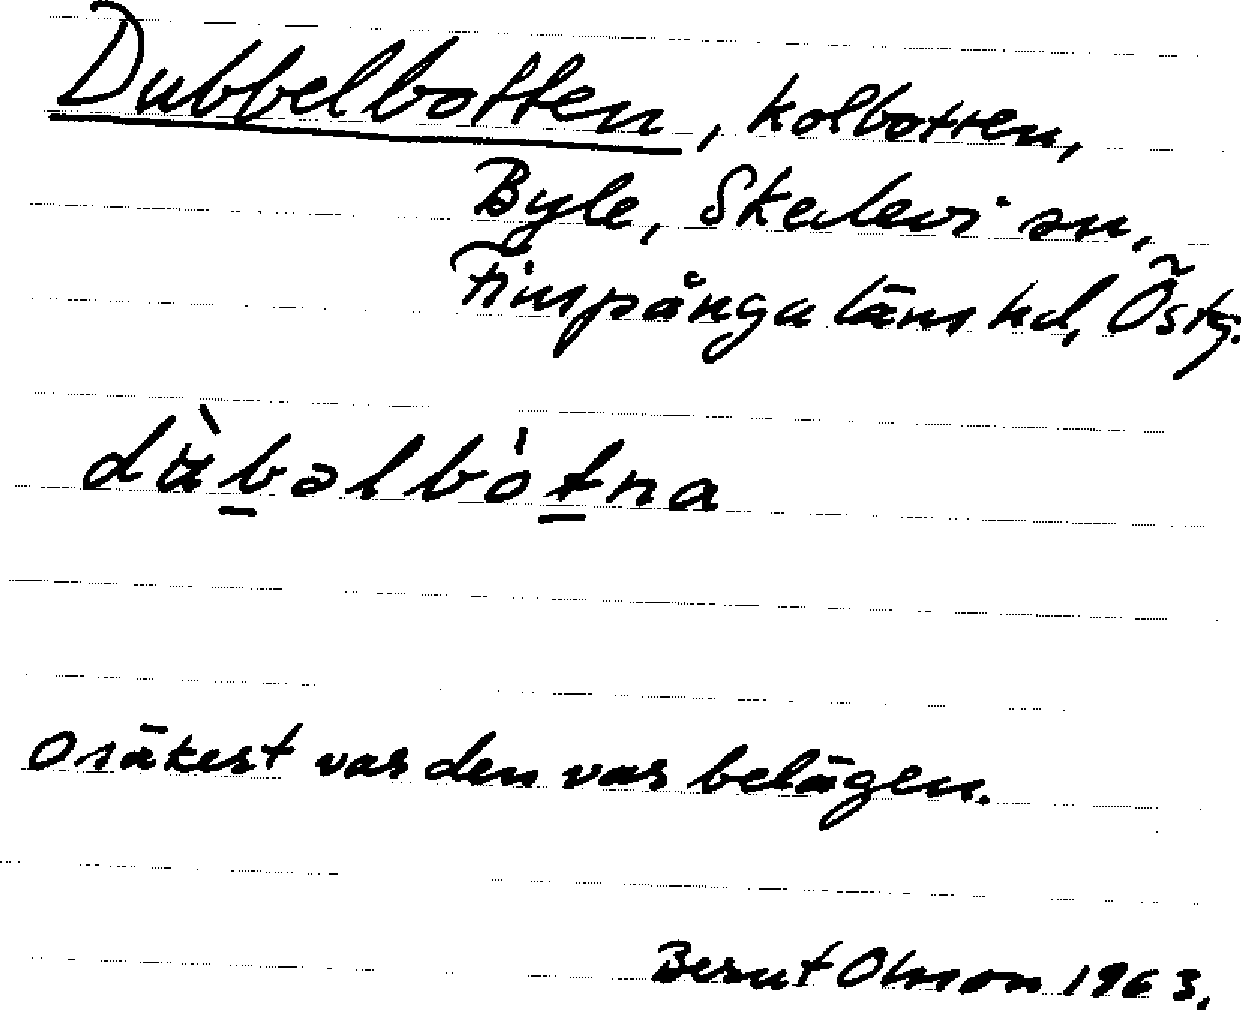 Dubbelbotten, kolbotten,
Byle, Skedevi sn,
Finspånga läns hd, Östg.
dὰbəlbòtna
Osäkert var den var belägen.
Bernt Olsson 1963.